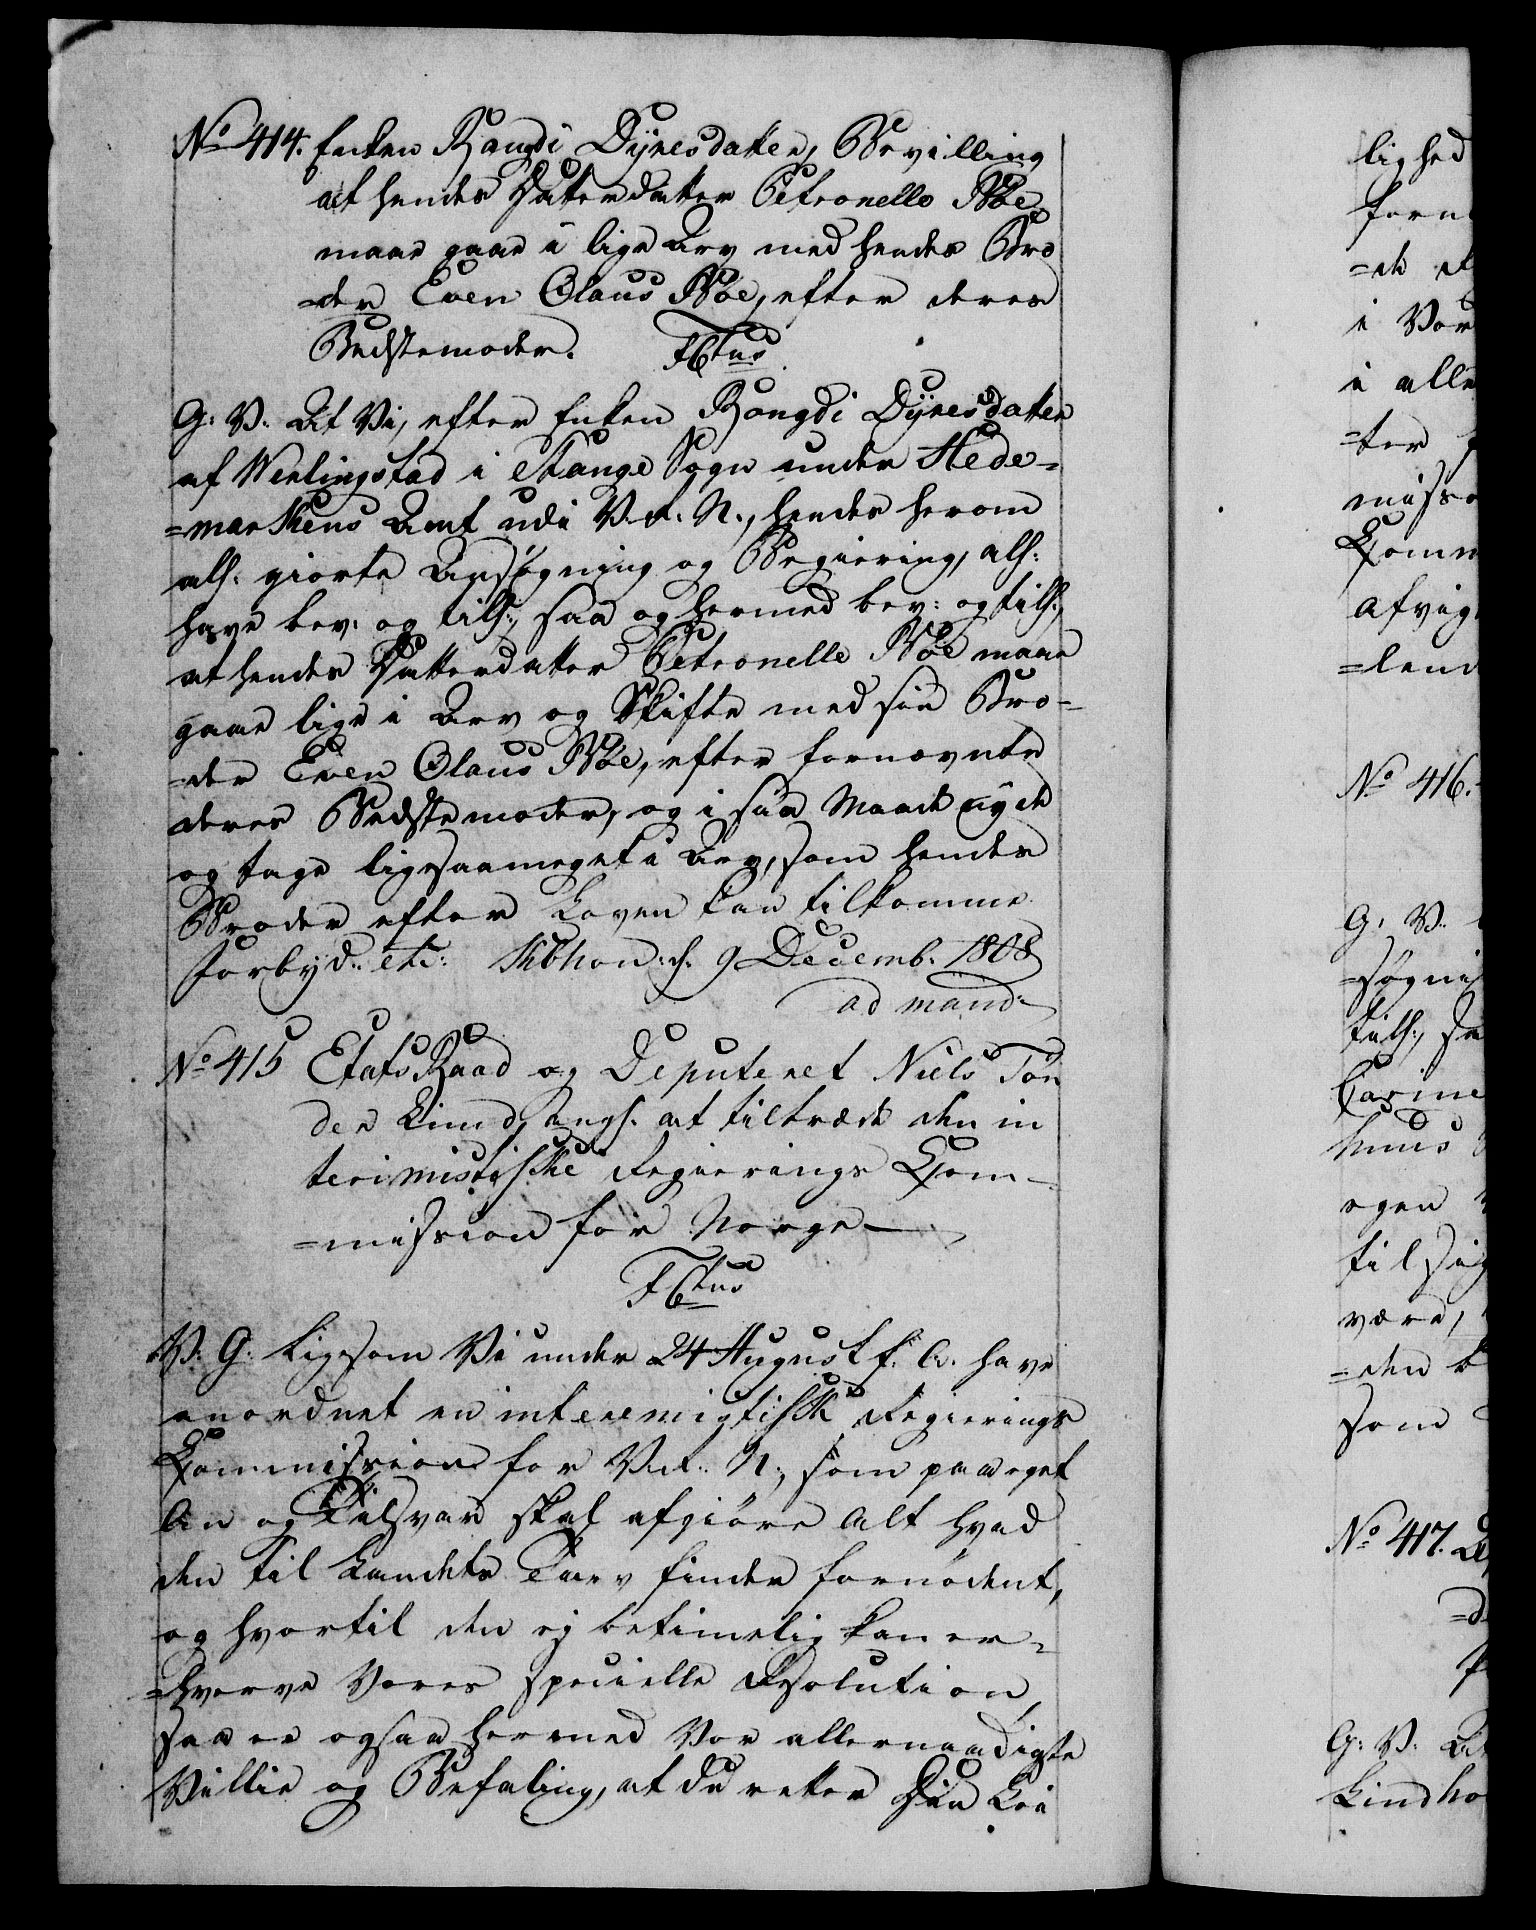 No 414. Enken Rangdi Dÿresdatter, Bevilling
at hendes Datterdatter Petronelle Boe
maae gaae i lige Arv med hendes Bro
=der Even Olaus Boe, efter deres
Bedstemoder. FCtus
G: V: At Vi, efter Enken Rangdi Dÿresdatter
af Werlingstad i Stange Sogn under Hede=
=markens Amt udi V. R. N., hendes herom
all: giorte Ansøgning og Begiering, all:
have bev: og till:, saa og hermed bev: og till:,
at hendes Datterdatter Petronelle Boe maae
gaae lige i Arv og Skifte med sin Bro=
=der Even Olaus Boe, efter fornævnte
deres Bedstemoder, og i saa Maade nÿde
og tage ligesaameget i Arv, som hendes
Broder efter Loven kan tilkomme.
Forbyd: etc: Kbhvn: d. 9 Decemb. 1808
ad mand:
No 415 Etats Raad og Deputeret Niels Tøn
der Lund, ang: at tiltræde den in
terimistiske Regierings Com=
=mission for Norge
FCtus
V. G: Ligesom Vi under 24 August f. A. have
anordnet en interimistisk Regierings
Commission for V. R. N:, som paa eget
An og Tilsvar skal afgiöre Alt hvad
den til Landets Tarv finder fornödent,
og hvortil den ej betimelig kan er=
=hverve Vores specielle Resolution,
saa er ogsaa hermed Vor allernaadigste
Villie og Befaling, at du retter Din Lei
lighed
=de
i Vor
i alle
=ter
Comm
afvig
=lend
No 416.
G: V.
=søgni
till:, sa
Carine
huus
ogen
tilsig
være,
=den
som
No 417.
G: V: At
Lindho